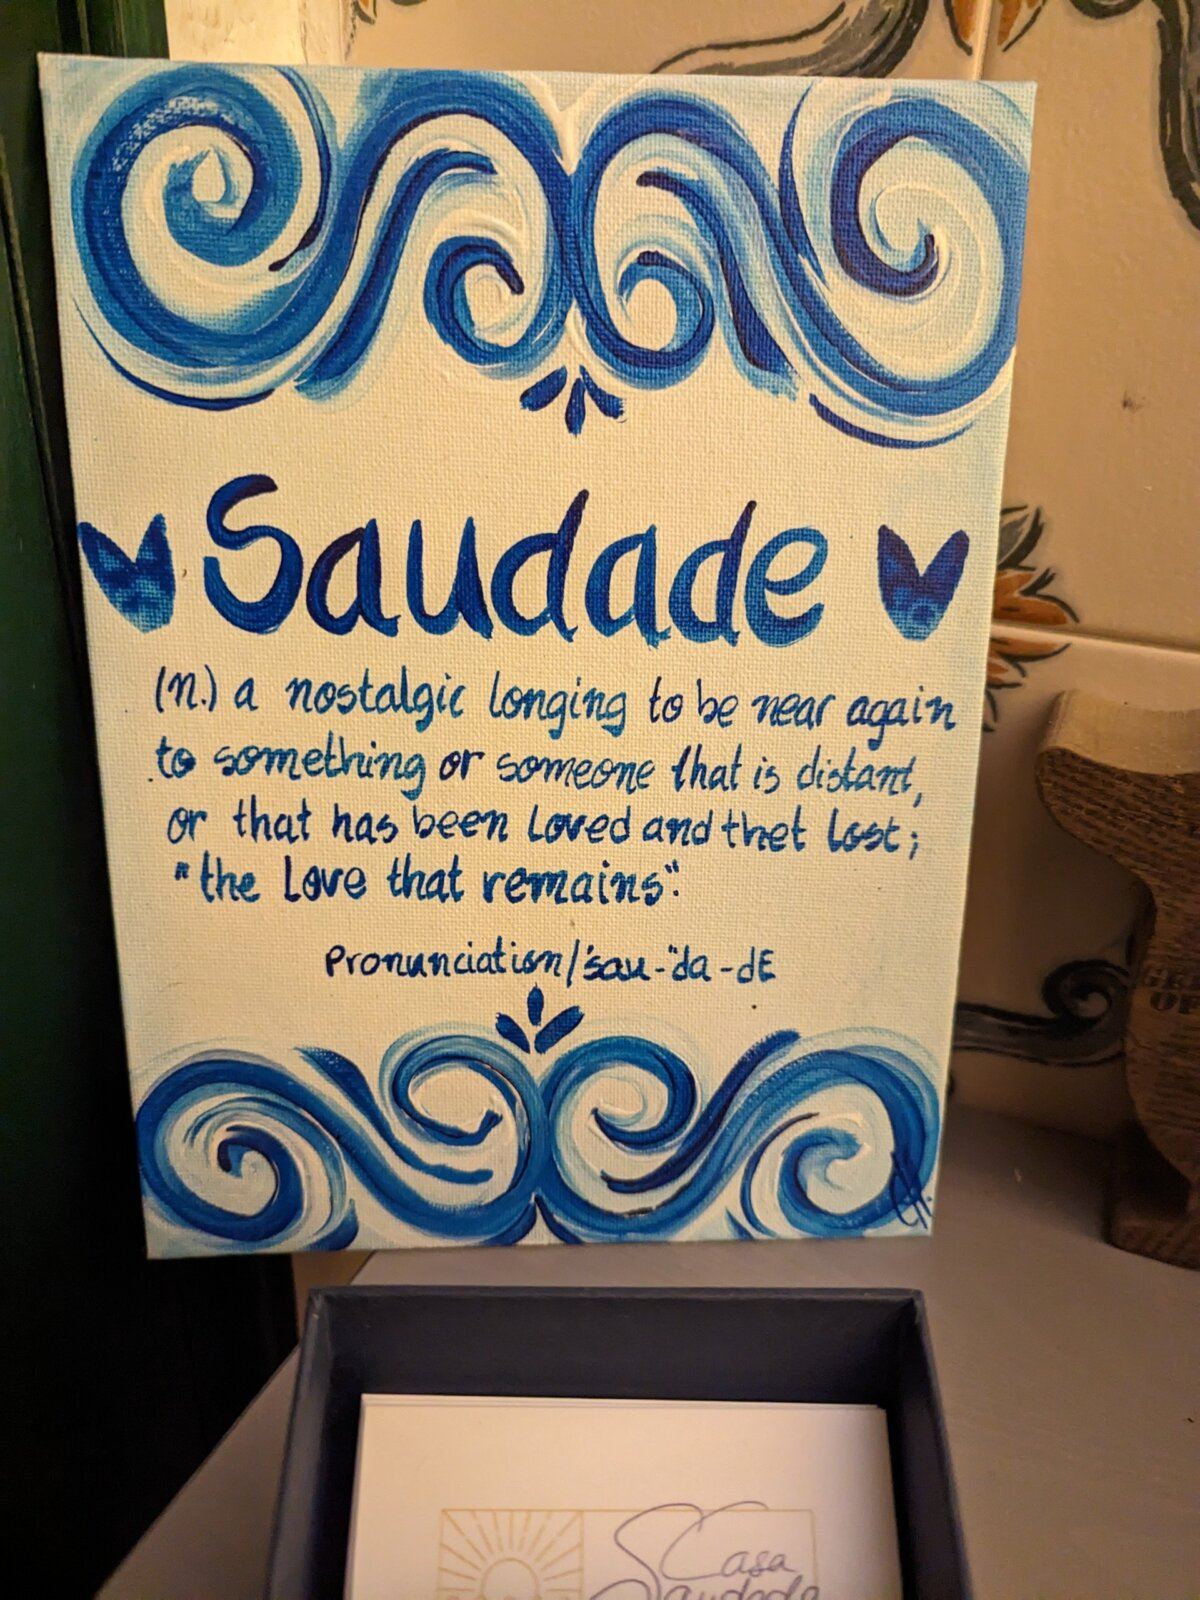 Saudade
(n.) a nostalgic longing to be near again
to something or someone that is distant,
or that has been loved and thet lost;
"the Love that remains".
Pronunciation/'sau-"da-dE
Casa
Saudade